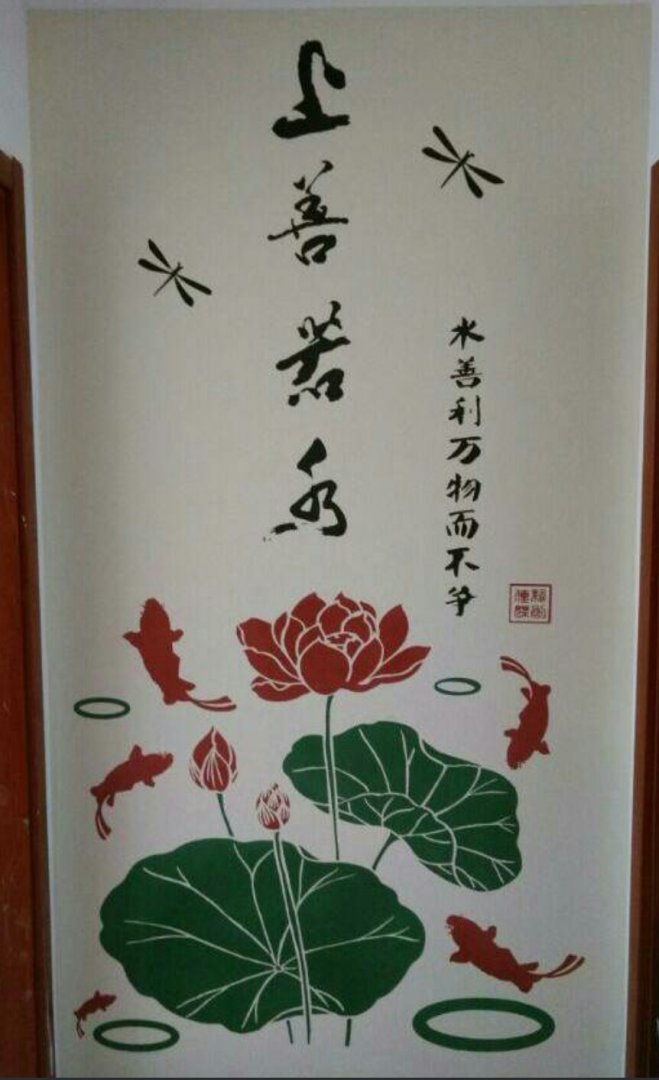 上善若水
水善利万物而不争